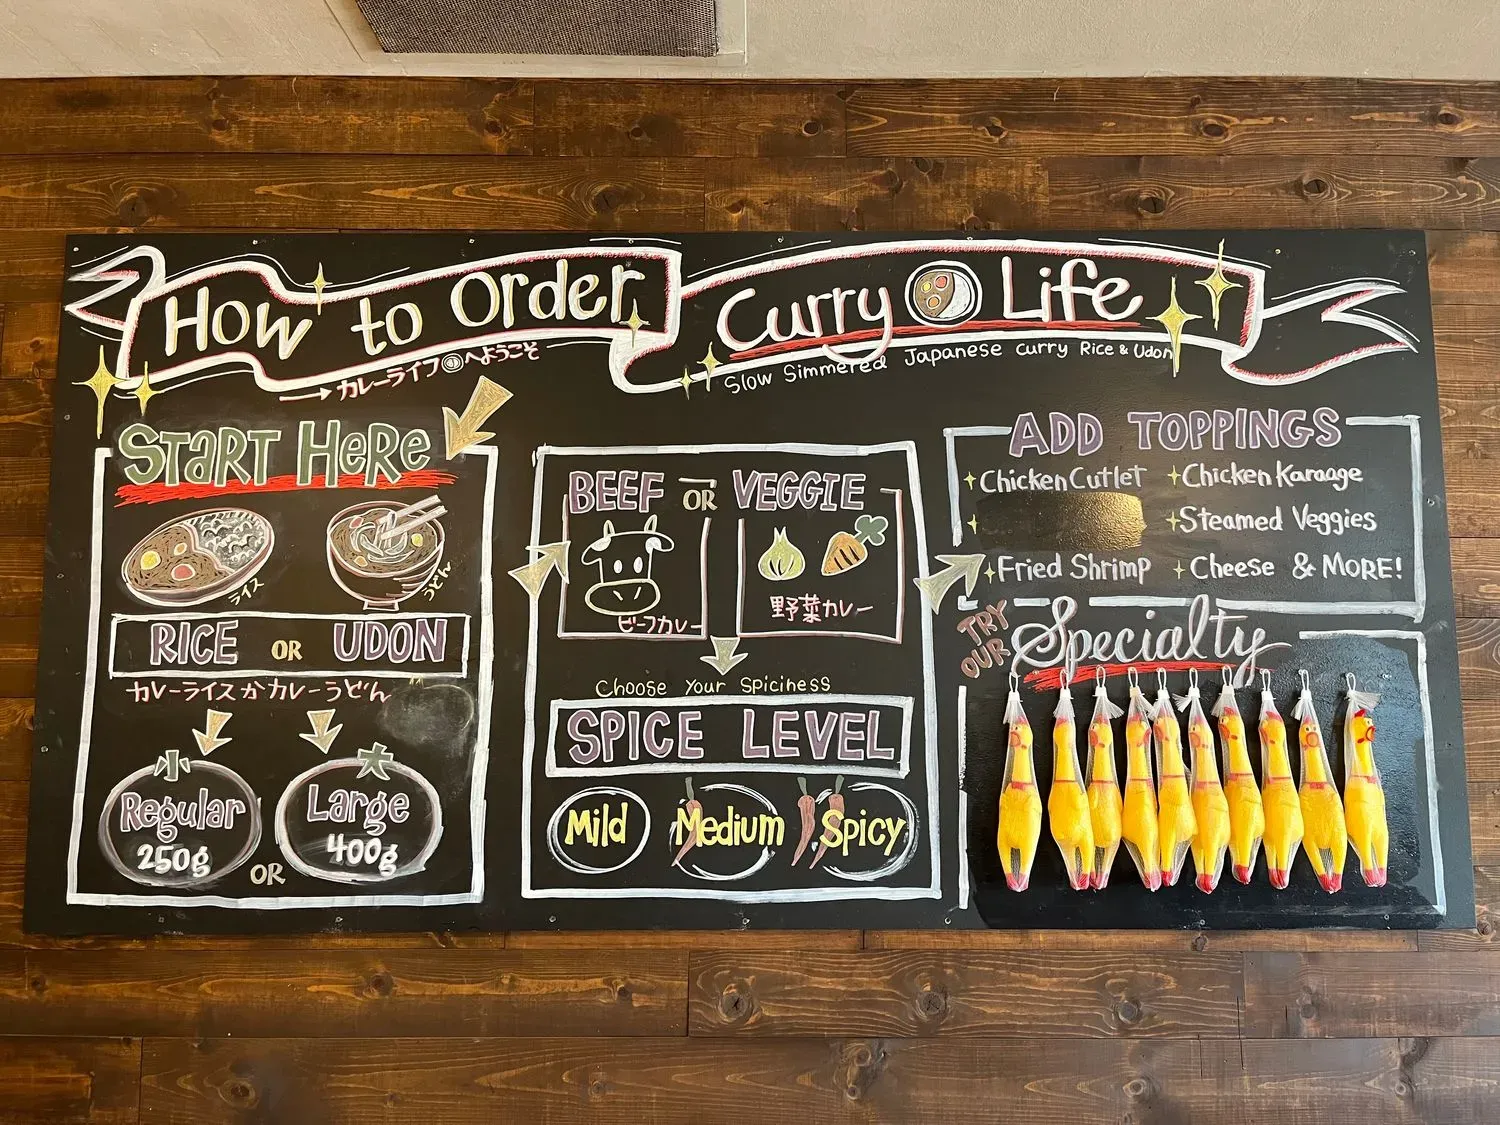 How to Order
Curry Life
→ カレーライフへようこそ
Slow Simmered Japanese Curry Rice & Udon
START HERE
ライス
うどん
RICE OR UDON
カレーライスかカレーうどん
小
Regular
250g
OR
大
Large
400g
BEEF OR VEGGIE
ビーフカレー
野菜カレー
Choose Your Spiciness
SPICE LEVEL
Mild
Medium
Spicy
ADD TOPPINGS
Chicken Cutlet
Chicken Karaage
Steamed Veggies
Fried Shrimp
Cheese & MORE!
TRY OUR
Specialty